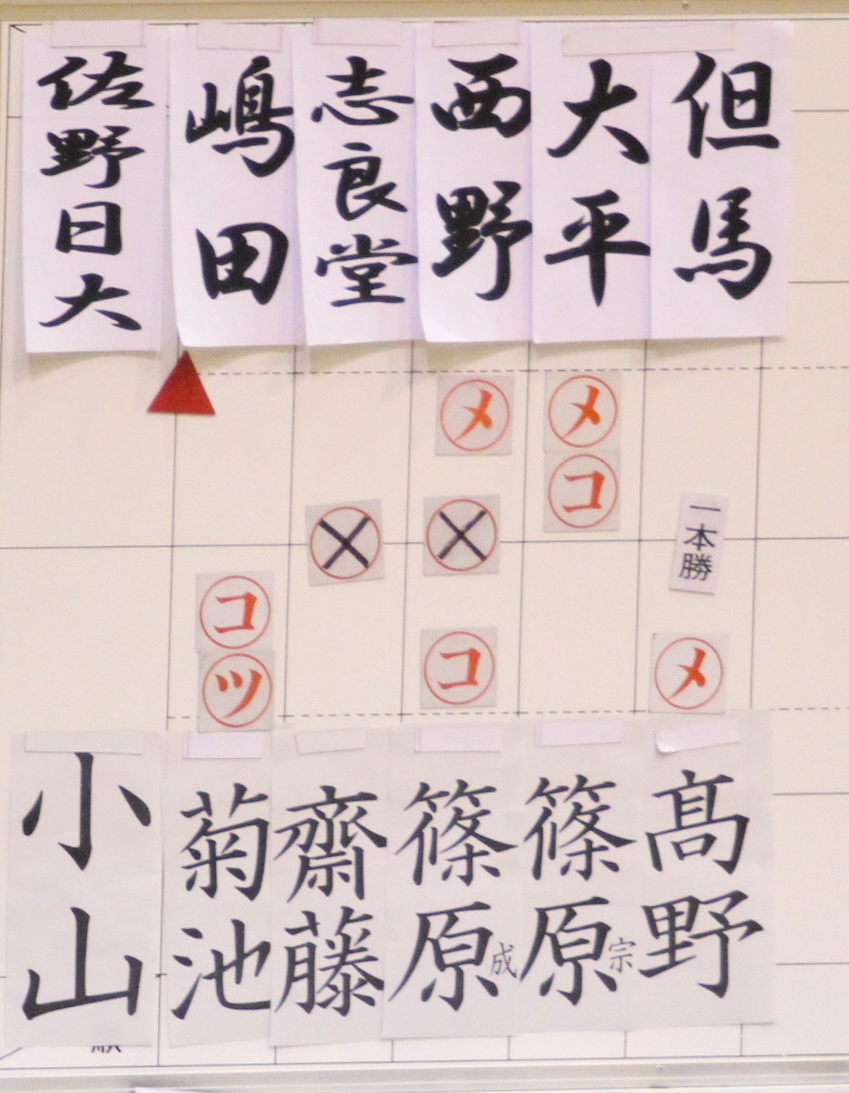 佐野日大
嶋田
志良堂
西野
大平
但馬
メ
メ
コ
一本勝
コ
ツ
コ
メ
小山
菊池
齋藤
篠原 成
篠原 宗
髙野